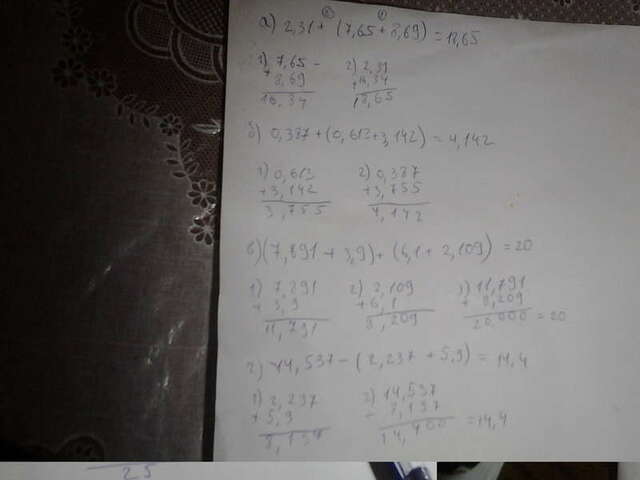 ② ①
а) 2,31 + (7,65 + 8,69) = 18,65
1) 7,65 2) 2,31
+ 8,69 + 16,34
16,34 18,65
б) 0,387 + (0,613 + 3,142) = 4,142
1) 0,613 2) 0,387
+ 3,142 + 3,755
3,755 4,142
в) (7,891 + 3,9) + (6,1 + 2,109) = 20
1) 7,891 2) 2,109 3) 11,791
+ 3,9 + 6,1 + 8,209
11,791 8,209 20,000 = 20
г) 14,537 − (2,237 + 5,9) = 14,4
1) 2,237 2) 14,537
+ 5,9 − 8,137
8,137 14,400 = 14,4
25